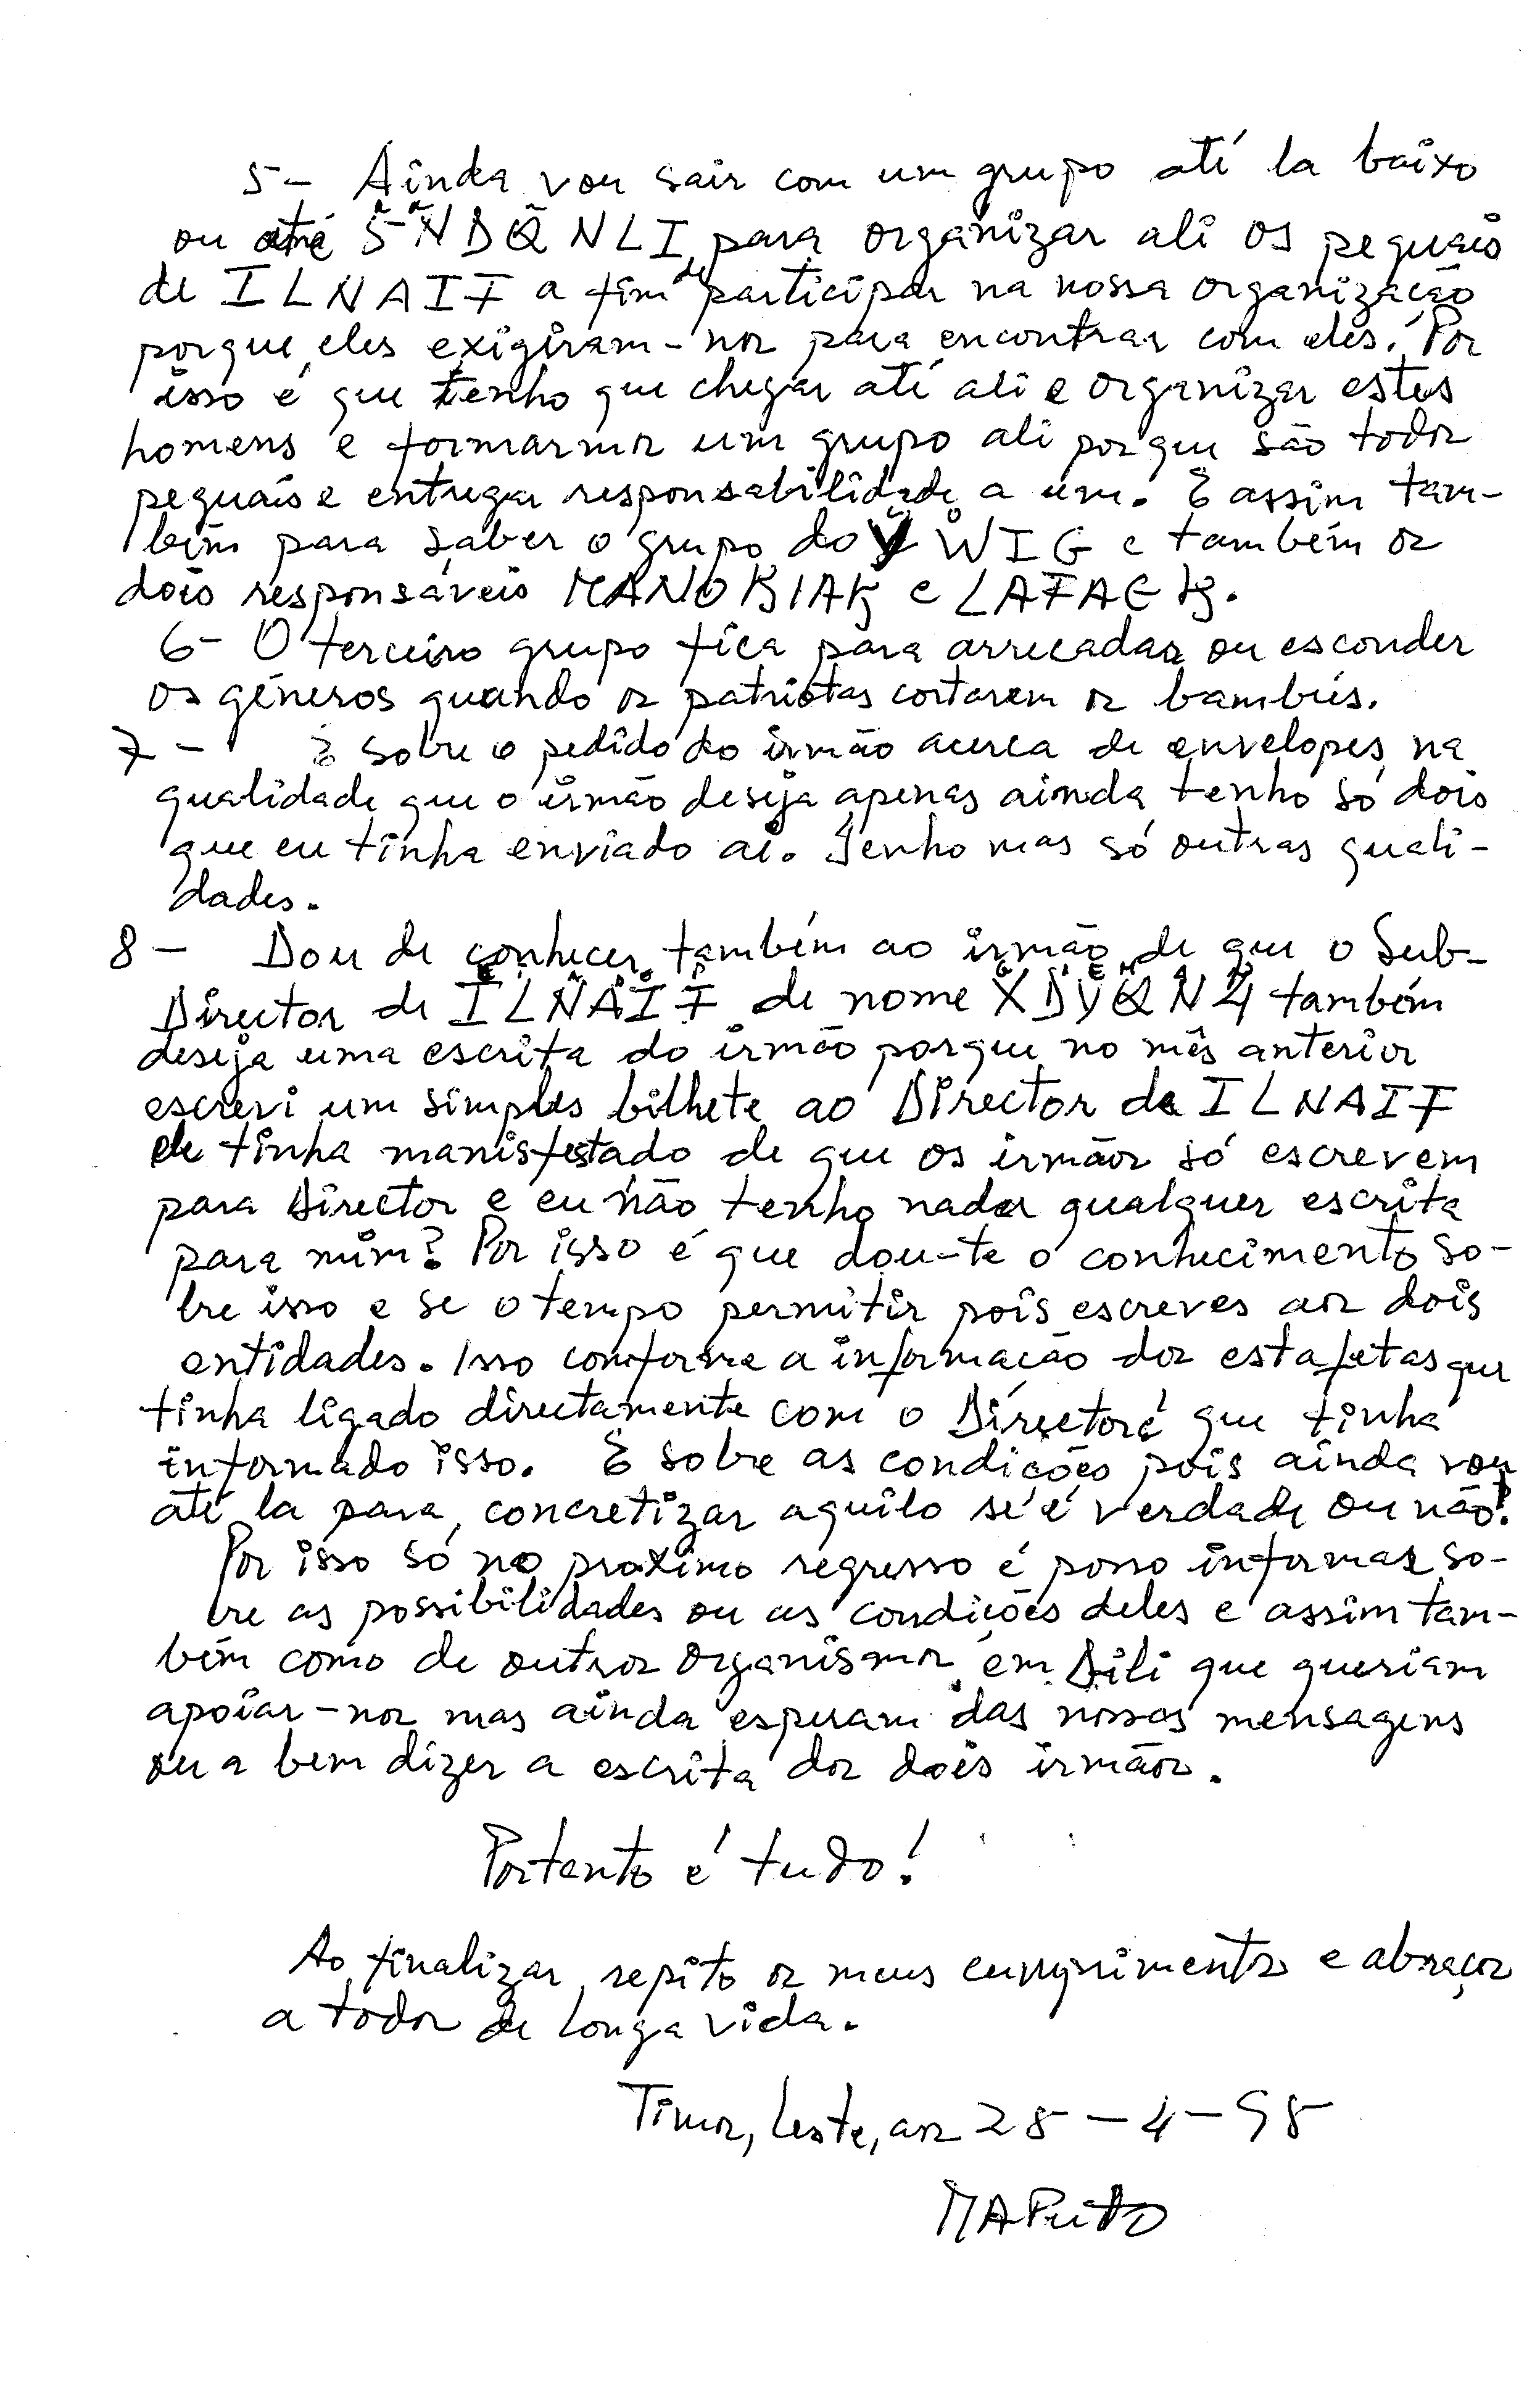 5- Ainda vou sair com um grupo até la baixo
ou até 5NDQNLI, para organizar ali os pequais
de ILNAIF a fim de participar na nossa organização
porque eles exigiram-nos para encontrar com eles. Por
isso é que tenho que chegar até ali e organizar estes
homens e formarmos um grupo ali porque são todos
pequais e entregar responsabilidade a um. E assim tam-
bém para saber o grupo do WIG e também os
dois responsáveis MANOKIAK e LAFAEK.
6- O terceiro grupo fica para arrecadar ou esconder
os géneros quando os patriotas cortarem os bambús.
7- E sobre o pedido do irmão acerca de envelopes, na
qualidade que o irmão deseja apenas ainda tenho só dois
que eu tinha enviado ai. Tenho mas só outras quali-
dades.
8- Dou de conhecer também ao irmão de que o Sub-
Director de ILNAIF de nome XDYQN4 também
deseja uma escrita do irmão porque no mês anterior
escrevi um simples bilhete ao Director de ILNAIF
ele tinha manisfestado de que os irmãos só escrevem
para Director e eu não tenho nada qualquer escrita
para mim? Por isso é que dou-te o conhecimento so-
bre isso e se o tempo permitir pois escreves aos dois
entidades. Isso conforme a informação dos estafetas que
tinha ligado directamente com o Director é que tinha
informado isso. E sobre as condições pois ainda vou
até la para concretizar aquilo se é verdade ou não!
Por isso só no proximo regresso é posso informar so-
bre as possibilidades ou as condições deles e assim tam-
bém como de outros organismos em Dili que queriam
apoiar-nos mas ainda esperam das nossas mensagens
ou a bem dizer a escrita dos dois irmãos.
Portanto é tudo!
Ao finalizar, repito os meus cumprimentos e abraços
a todos de longa vida.
Timor, Leste, aos 28-4-98
MAPuto